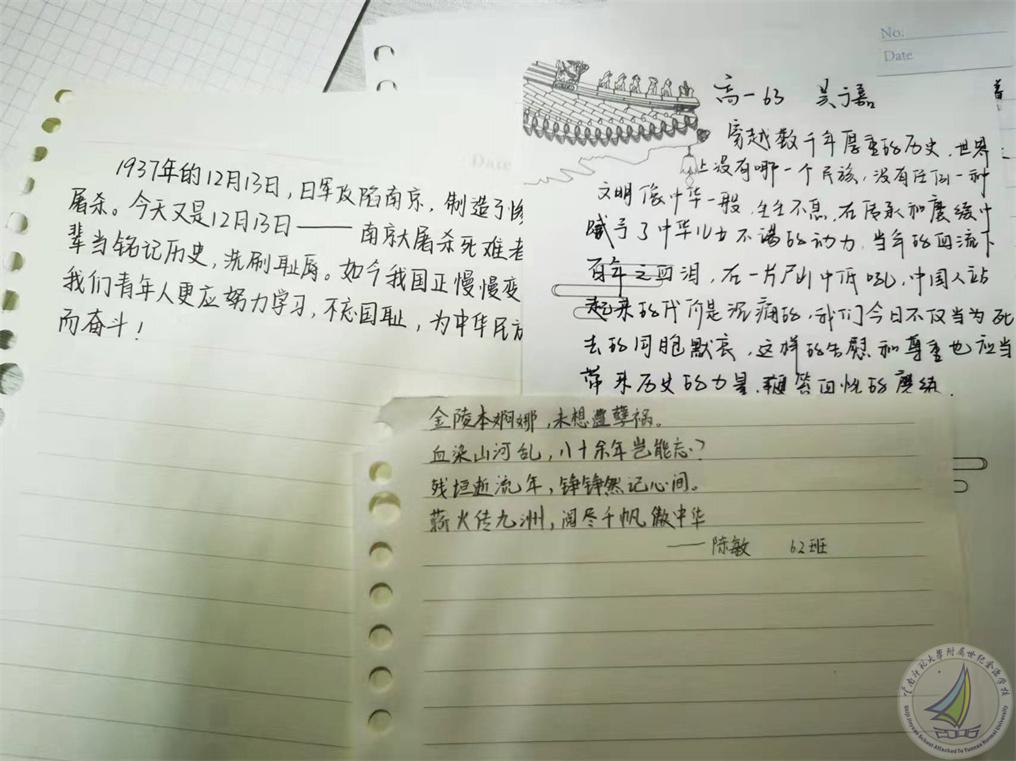 1937年的12月13日，日军攻陷南京，制造了惨
屠杀。今天又是12月13日——南京大屠杀死难者
辈当铭记历史，洗刷耻辱。如今我国正慢慢变
我们青年人更应努力学习，不忘国耻，为中华民族
而奋斗！
No.
Date
Date
高一63 吴嘉
穿越数千年厚重的历史，世界
上没有哪一个民族，没有任何一种
文明像中华一般，生生不息，在传承和磨练中
赋予了中华儿女不竭的动力，当年的血流下
百年之血泪，在一片尸山中低吼，中国人站
起来的代价是沉痛的，我们今日不仅当为死
去的同胞默哀，这样的告慰和尊重也应当
带来历史的力量，鞭答血性的磨练.
金陵本婀娜，未想遭孽祸。
血染山河乱，八十余年岂能忘？
残垣断流年，铮铮然记心间。
薪火传九洲，阅尽千帆傲中华
——陈敏 62班
云南师范大学附属世纪金源学校